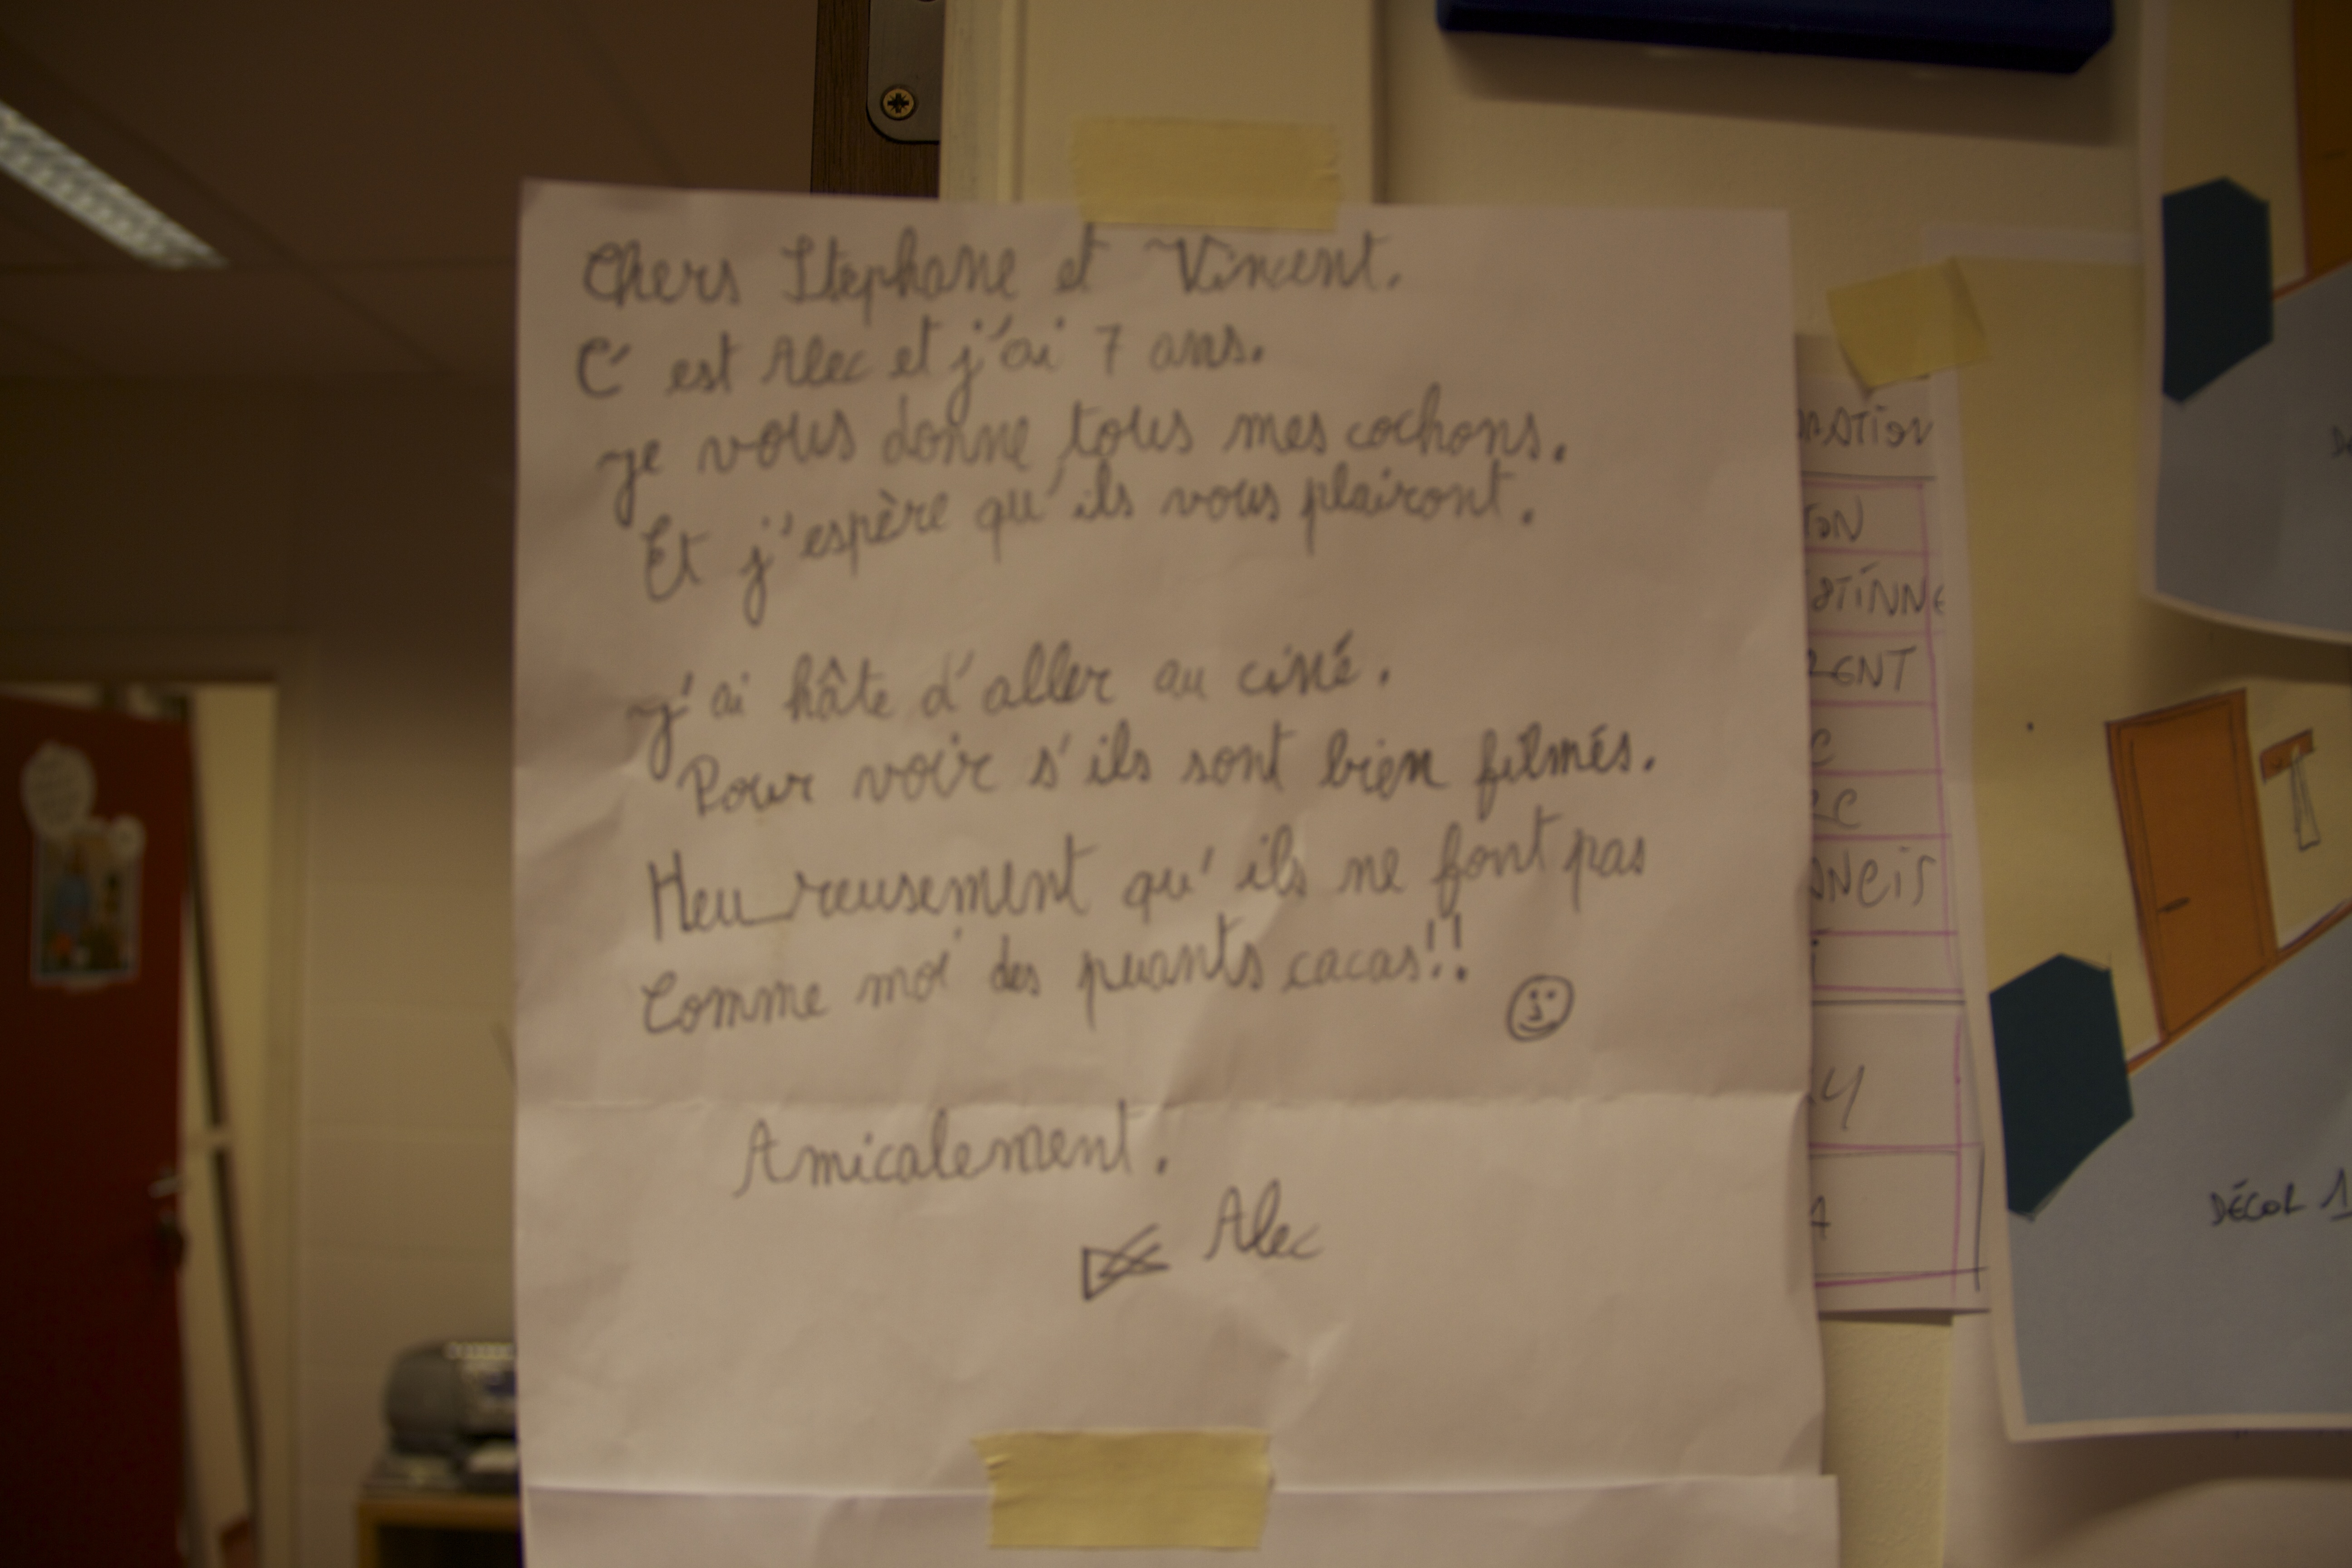 Chers Stephane et Vincent.
C'est Alec et j'ai 7 ans.
je vous donne tous mes cochons.
Et j'espère qu'ils vous plairont.
j'ai hâte d'aller au ciné.
Pour voir s'ils sont bien filmés.
Heureusement qu'ils ne font pas
Comme moi des puants cacas!!
Amicalement.
Alec
DÉCOL 1